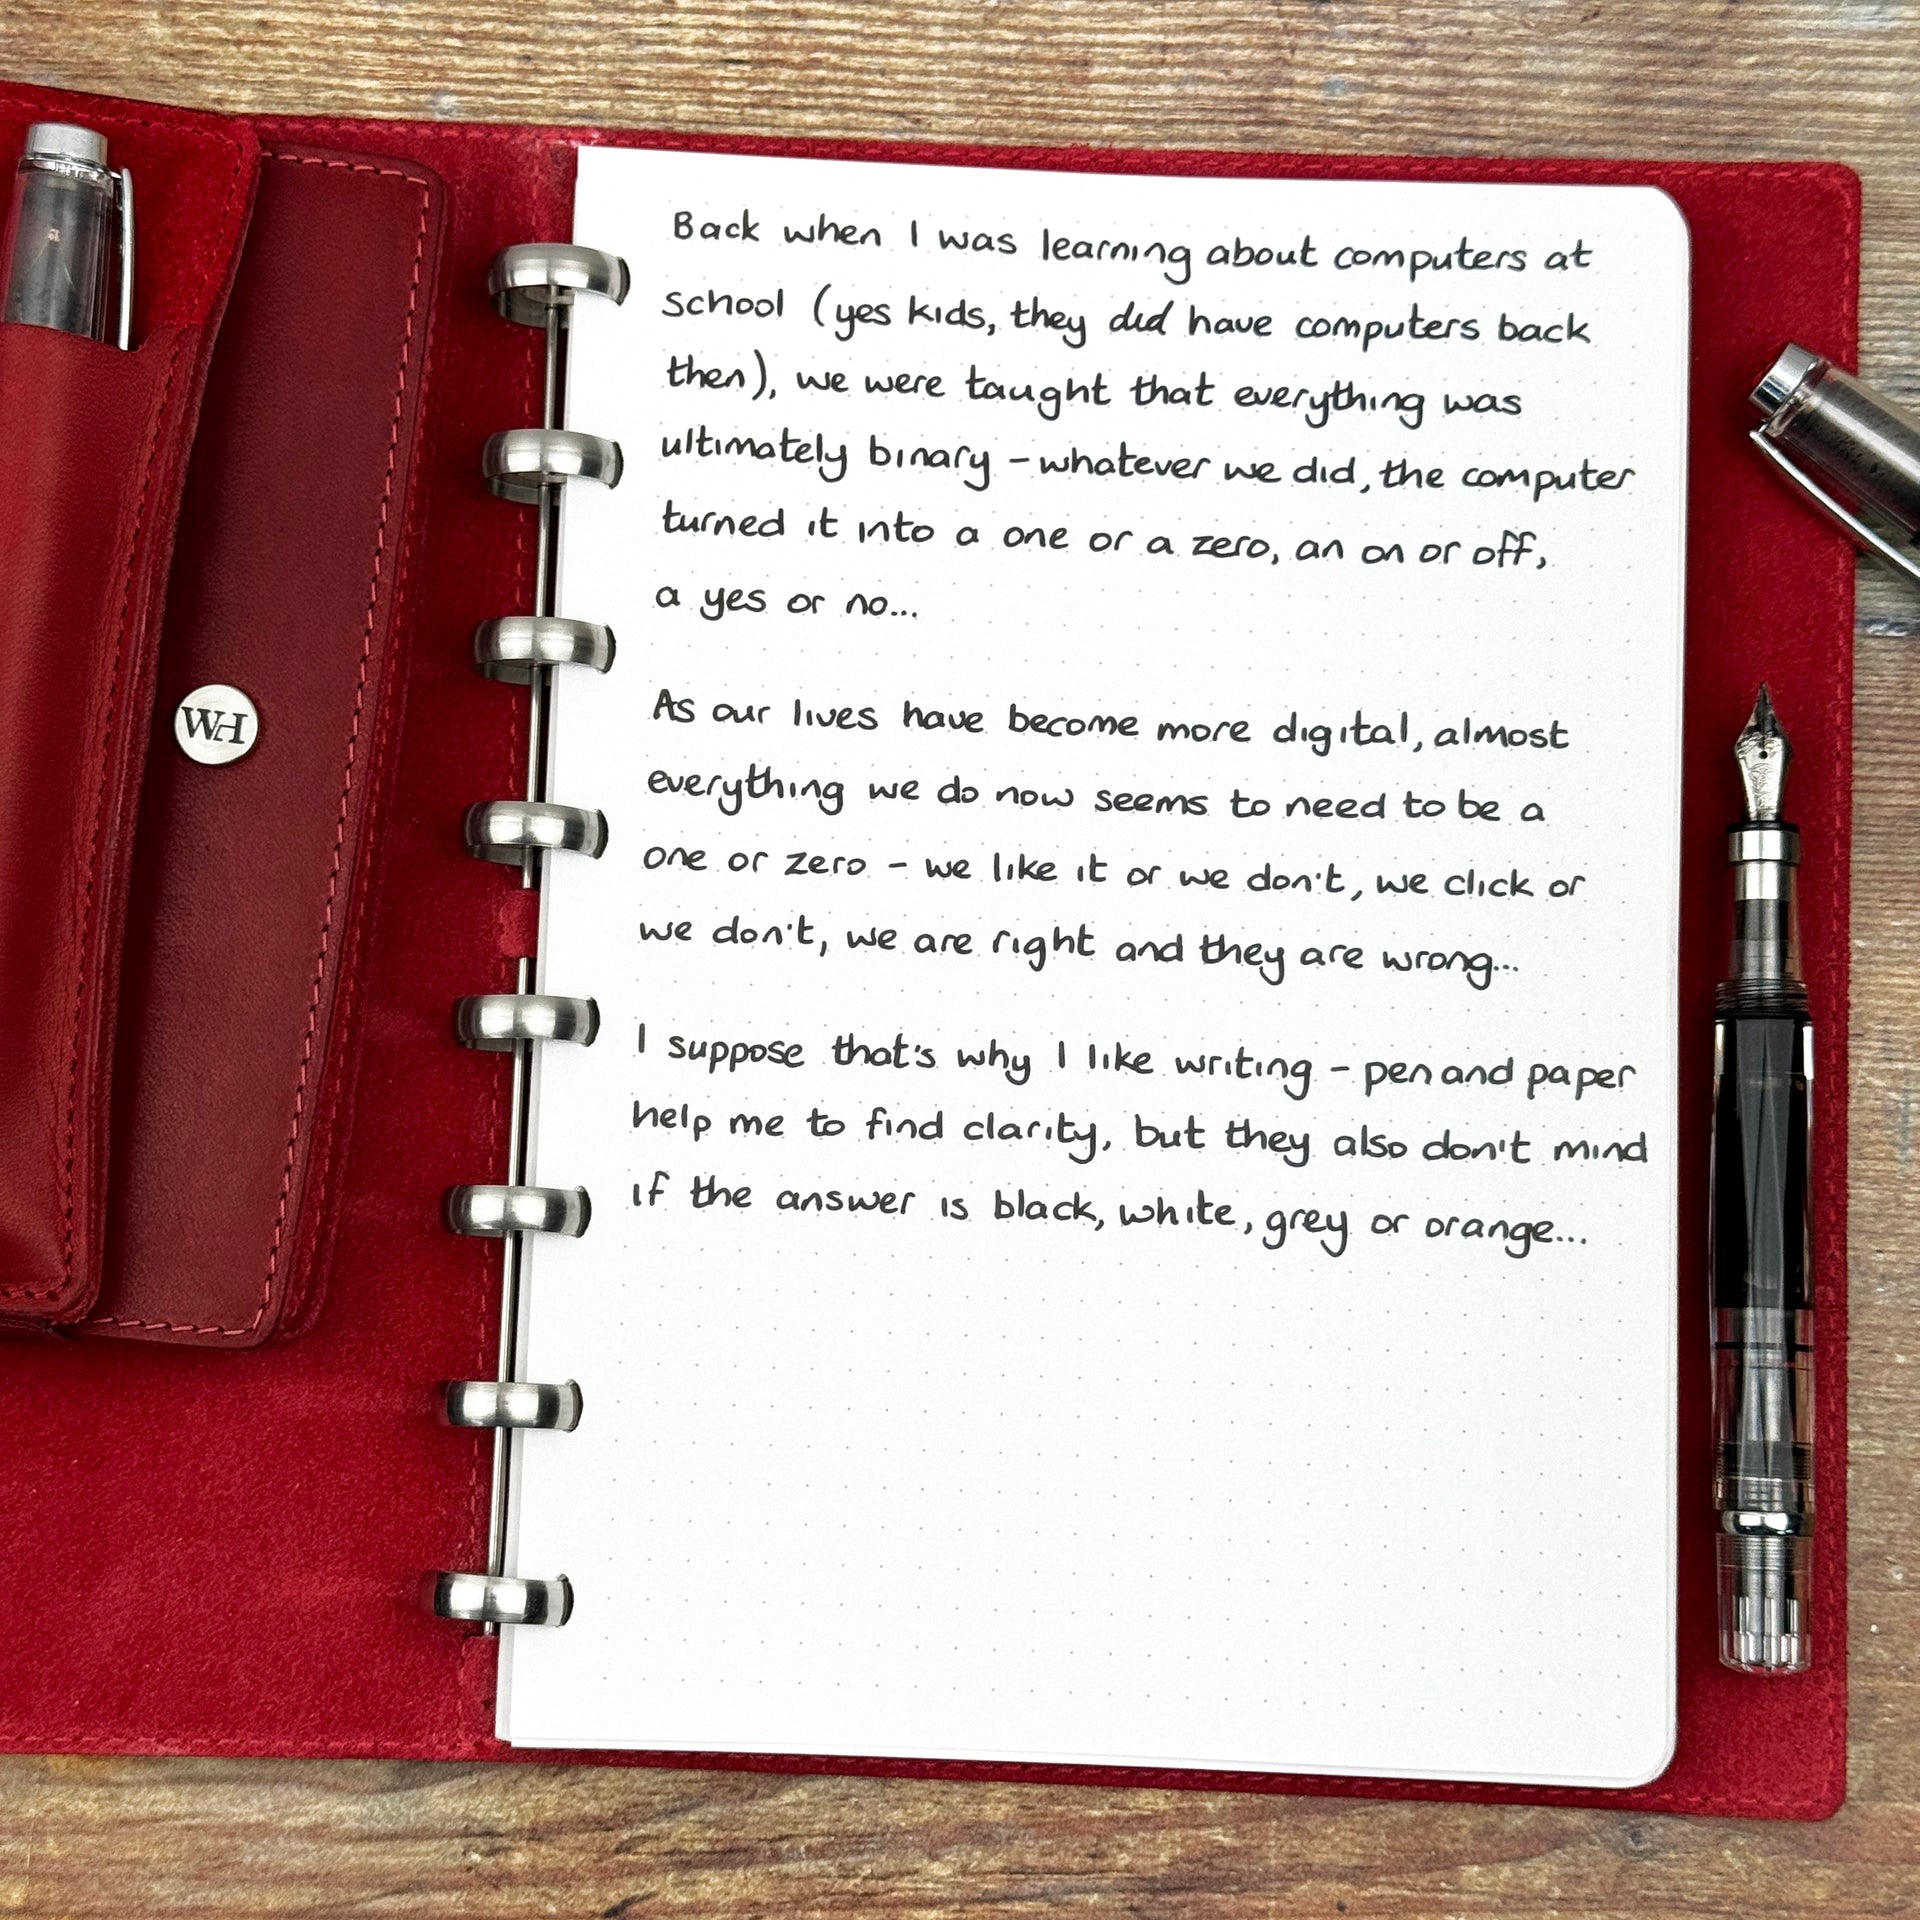 Back when I was learning about computers at
school (yes kids, they did have computers back
then), we were taught that everything was
ultimately binary – whatever we did, the computer
turned it into a one or a zero, an on or off,
a yes or no...
As our lives have become more digital, almost
everything we do now seems to need to be a
one or zero – we like it or we don't, we click or
we don't, we are right and they are wrong...
I suppose that's why I like writing – pen and paper
help me to find clarity, but they also don't mind
if the answer is black, white, grey or orange...
WH